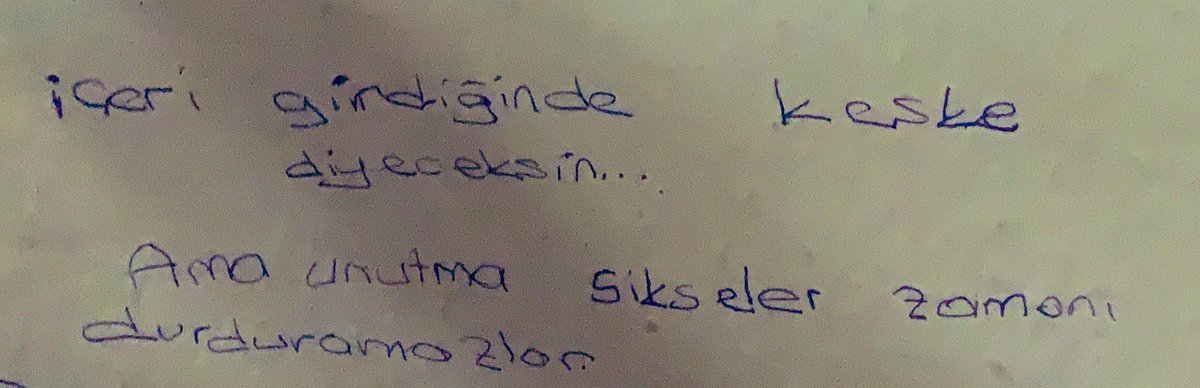 içeri girdiğinde keske
diyeceksin....
Ama unutma sikseler zamanı
durduramazlar